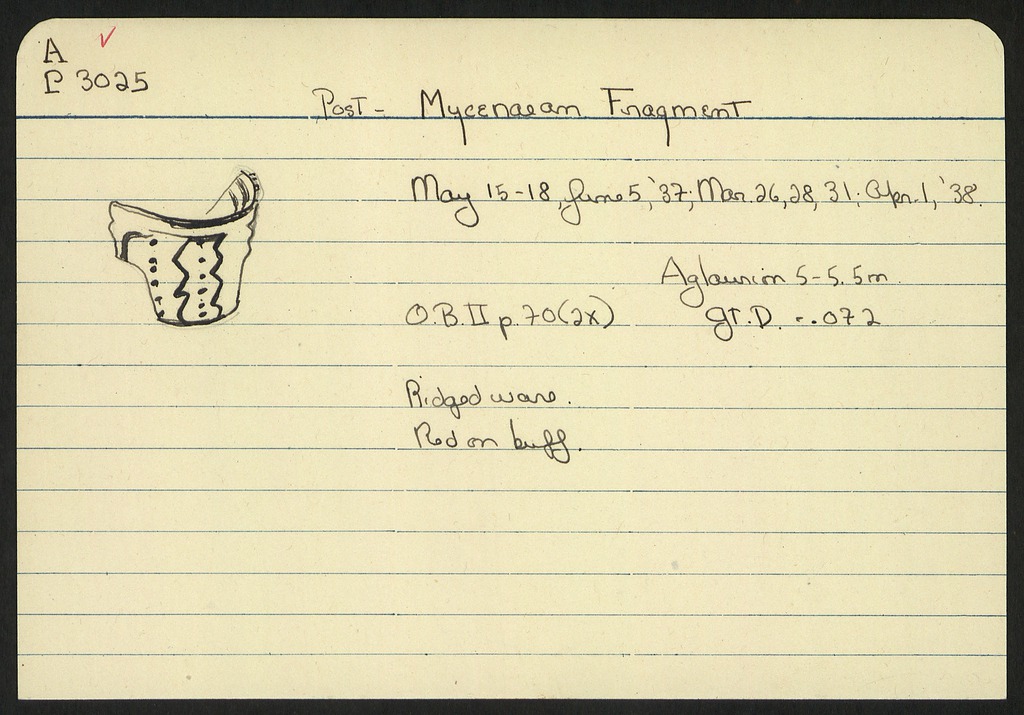 A
P 3025
Post- Mycenaean Fragment
May 15-18, June 5, '37; Mar. 26, 28, 31; Apr. 1, '38.
Aglaurion 5-5.5m
O.B. II p. 70 (2x) gr. D. -.072
Ridged ware.
Red on buff.